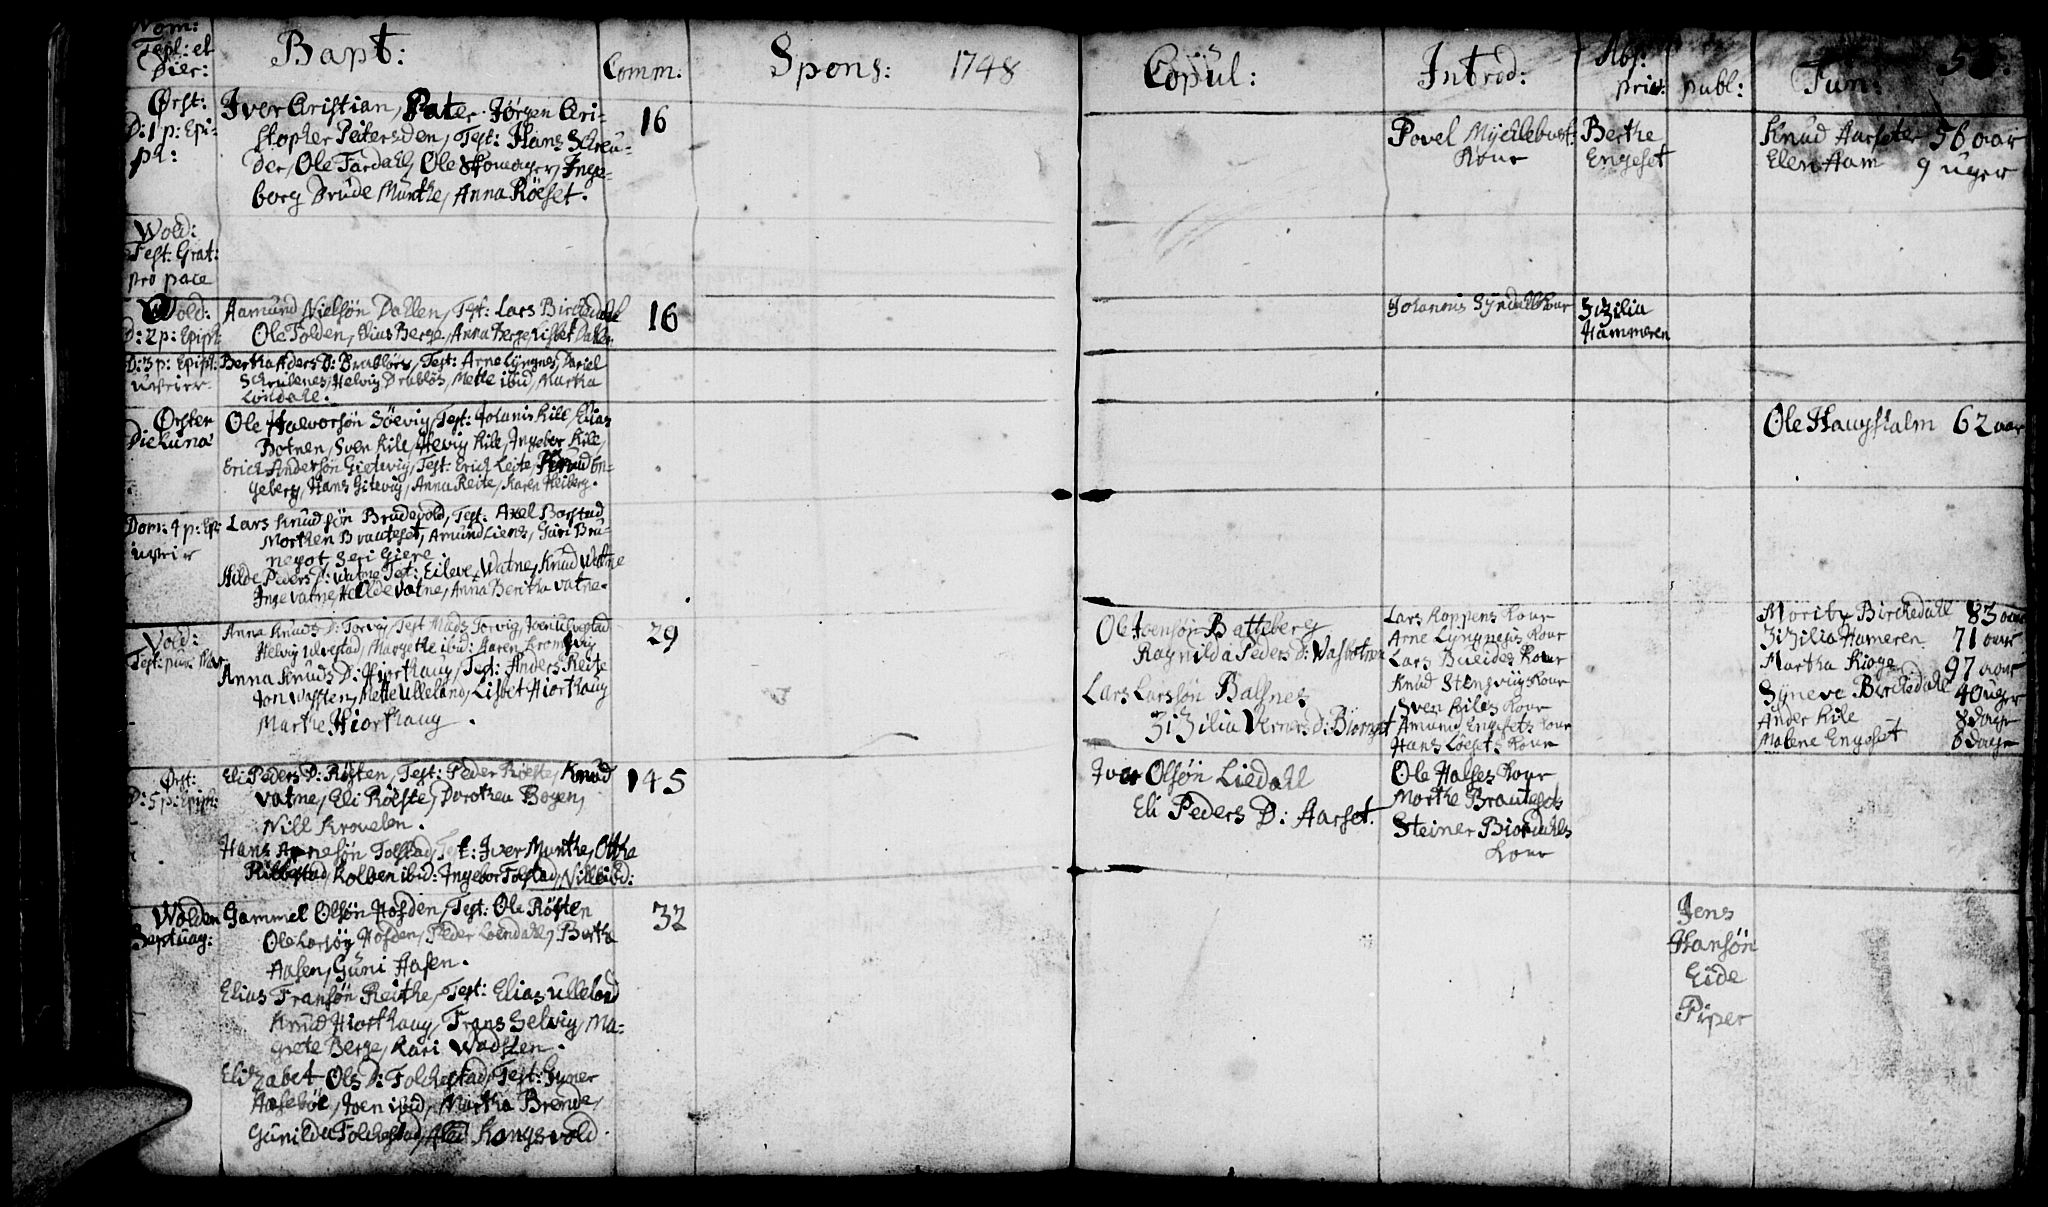 Nom:
Tepl: et
Dier:
Bapt:
Comm:
Spons:
1748
Copul:
Introd:
Abs:
priv:
publ:
Fun:
Ørst:
D: 1 p: Epi-
ph:
Iver Cristian, Pater Jørgen Cri-
stopher Petersden, Test: Hans Schreu-
der, Ole Fardahl, Ole Skomager, Inge-
borg Drude Munthe, Anna Röeset.
16
Povel Mychlebust:
Kone
Berthe
Engeset
Knud Aarseter 56 aar
Elen Aam 9 uger
Wold:
Fest: Grat:
pro pace
Wold:
D: 2 p: Epiph:
Aamund Nielsön Dahlen, Test: Lars Birchedahl
Ole Folden, Elias Berge, Anna Berge, Lisbet Dahlen
16
Johannis Syndahls Kone
Zizilia
Hammeren
D: 3 p: Epiph:
uveier
Bertha Anders D: Brabløs, Test: Arne Lyngnes, Daniel
Helvig Drabløs, Mette ibid, Martha
Løndahl.
Ørsten
Die Luna
Ole Halvorsön Söevig, Test: Johanis Kile, Elias
Botnen, Sven Kile, Helvig Kile, Ingebor Kile,
Erich Andersön Gietevig, Test: Erich Leite, Knud En-
geberg, Hans Gitevig, Anna Reite, Karen Heiberg.
Ole Haugshalm 62 aar
Dom: 4 p: Ep:
uveir
Lars Knudsön Brudevold, Test: Axel Barstad
Morthen Brauteset, Amund Liens, Guri Bru-
negot, Seri Giere
Hilde Peders D: Vatne Test: Eileve Watne, Knud Watne
Inge Vatne, Helde Vatne, Anna Beritha Vatne.
Vold:
Fest: pur: Mar:
Anna Knuds D: Torvig, Test Mads Torvig, Joen Ulvestad
Helvig Ulvestad, Margethe ibid: Karen Kromsvig
Anna Knuds D: Hiorthaug, Test: Anders Reite
Jon Wassten, Mette Ulleland, Lisbet Hiorthaug
Marthe Hiorthaug.
29
Ole Joensön Batteberg
Ragnilda Peders D: Vasbotnen
Lars Larsön Balsnes
Zizilia Verners D: Biorngt
Lars Koppens Kone
Arne Lyngnesis Kone
Lars Bueides Kone
Knud Stensviigs Kone
Sven Kiles Kone
Amund Engesets Kone
Hans Löesets Kone
Moritz Birchedahl 83 aar
Zizilia Hameren 71 aar
Martha Kioge 97 aar
Syneve Birchedahl 40 uger
Ander Kile 8 dage
Malene Engeset 8 dage
Ørst:
D: 5 p: Epiph:
Eli Peders D: Røsten, Test: Peder Röeste, Knud
Vatne, Eli Röeste, Dorothea Bogen,
Nill Krovelen.
Hans Arnesön Tolstad, Test: Iver Munthe, Ottha
Ribbestad, Kolben ibid: Ingebor Tolstad, Nille ibid:
145
Iver Olsön Liedahl
Eli Peders D: Aarset.
Ole Halses Kone
Morthe Brautesets
Steiner Biordahls
Kone
Wolden
Septuag:
Gammel Olsön Hofden, Test: Ole Røsten
Ole Larsön Hofden, Peder Løendahl, Bertha
Aasen, Guni Aasen.
Elias Fransön Reithe, Test: Elias Ulleland
Knud Hiorthaug, Frans Selvig, Ma-
grete Berge, Kari Wadsten.
Elizabet Ols D: Folchestad, Test: Gunner
Aasebøe, Joen ibid, Martha Brende,
Gunilda Folchestad, Kongsvold
32
Jens
Hansön
Eide
Piper